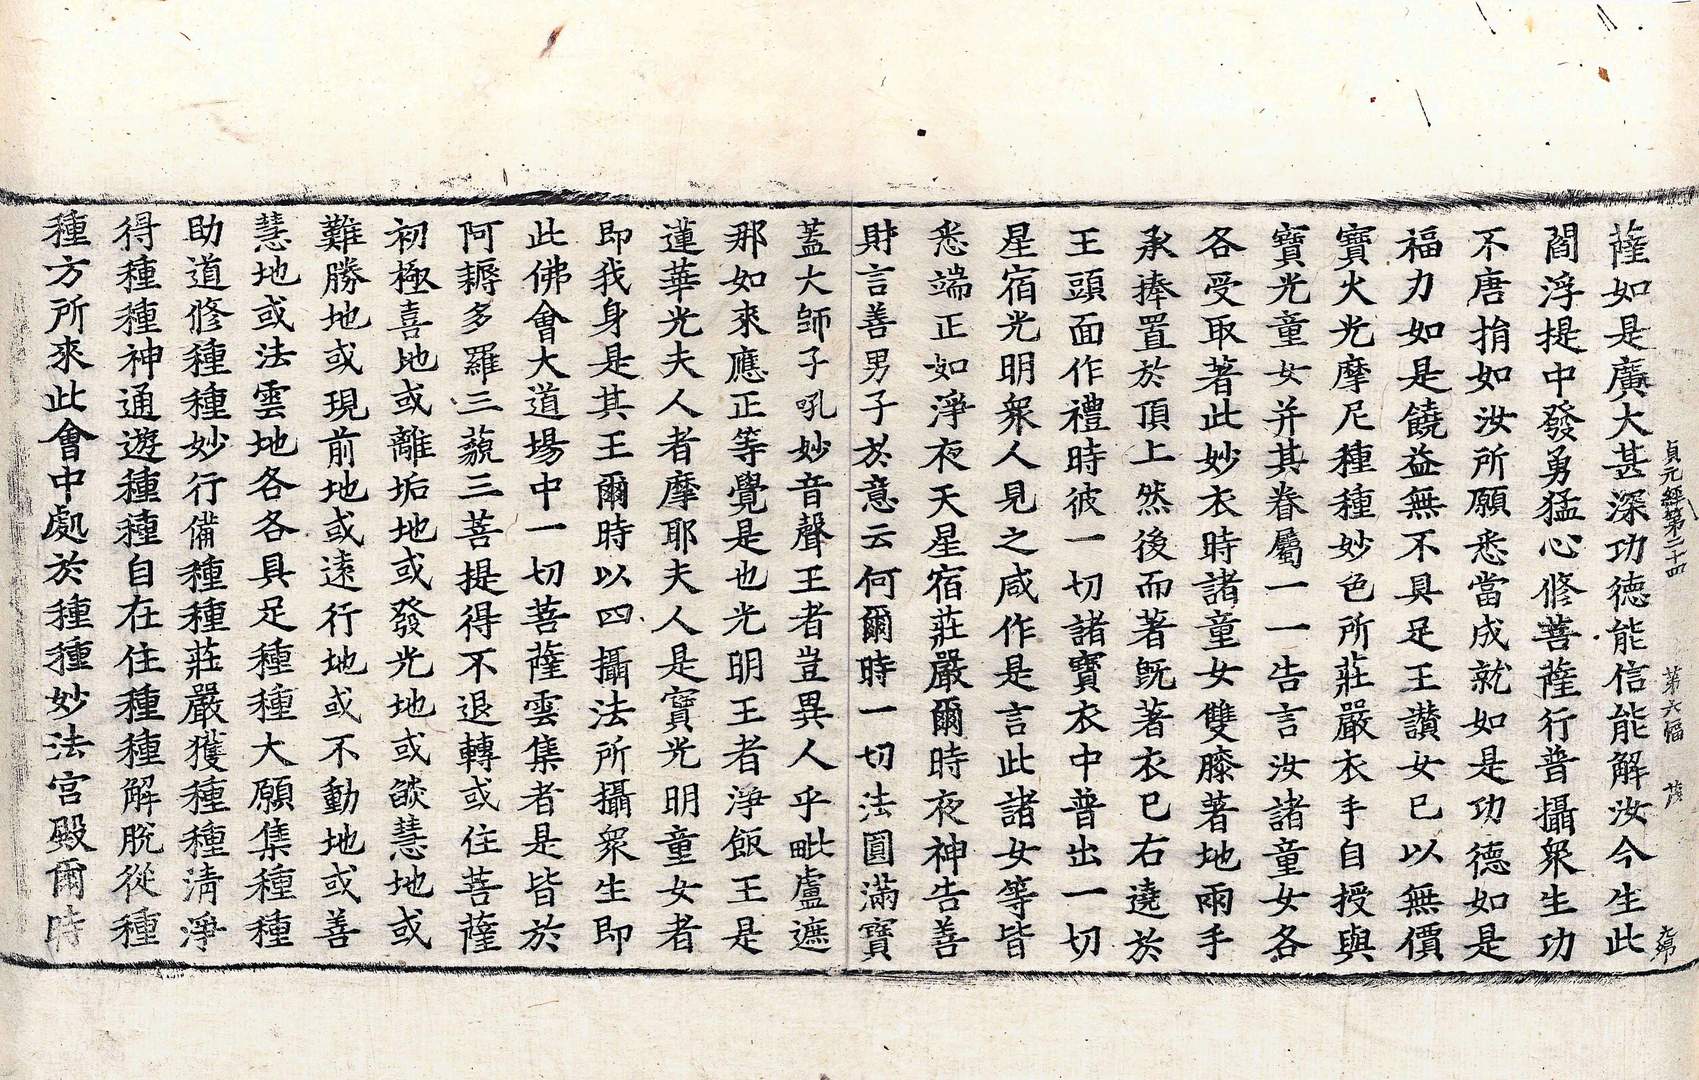 貞元經第二十四 第六幅
薩如是廣大甚深功德能信能解汝今生此
閻浮提中發勇猛心修菩薩行普攝眾生功
不唐捐如汝所願悉當成就如是功德如是
福力如是饒益無不具足王讚女已以無價
寶火光摩尼種種妙色所莊嚴衣手自授與
寶光童女并其眷屬一一告言汝諸童女各
各受取著此妙衣時諸童女雙膝著地兩手
承捧置於頂上然後而著既著衣已右遶於
王頭面作禮時彼一切諸寶衣中普出一切
星宿光明眾人見之咸作是言此諸女等皆
悉端正如淨夜天星宿莊嚴爾時夜神告善
財言善男子於意云何爾時一切法圓滿寶
蓋大師子吼妙音聲王者豈異人乎毗盧遮
那如來應正等覺是也光明王者淨飯王是
蓮華光夫人者摩耶夫人是寶光明童女者
即我身是其王爾時以四攝法所攝眾生即
此佛會大道場中一切菩薩雲集者是皆於
阿耨多羅三藐三菩提得不退轉或住菩薩
初極喜地或離垢地或發光地或燄慧地或
難勝地或現前地或遠行地或不動地或善
慧地或法雲地各各具足種種大願集種種
助道修種種妙行備種種莊嚴獲種種清淨
得種種神通遊種種自在住種種解脫從種
種方所來此會中處於種種妙法宮殿爾時